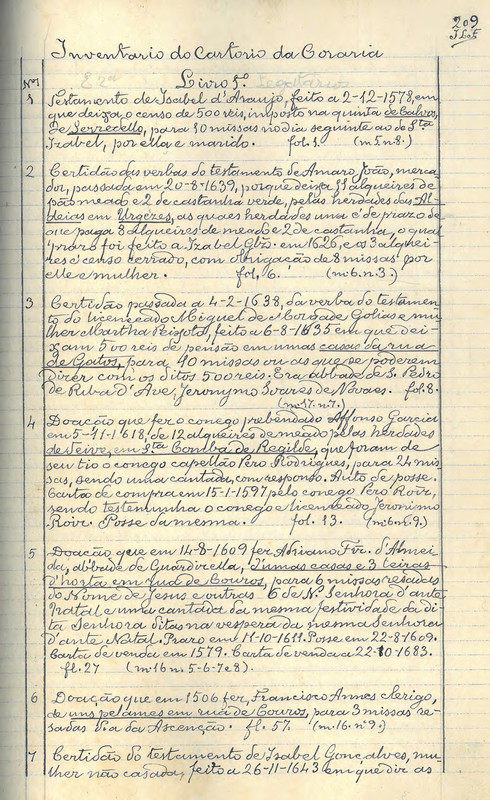 209
Inventario do Cartorio da Coraria
Livro 1º
Nos
1 Testamento de Isabel d'Araujo, feito a 2-12-1578, em
que deixa o censo de 500 reis, imposto na quinta de Calvos,
de Serzedello, para 10 missas no dia seguinte ao de Sta
Izabel, por ella e marido. fol. 1. (m. 5. n. 8.)
2 Certidão das verbas do testamento de Amaro João, merca-
dor, passada em 20-8-1639, porque deixa 11 alqueires de
pão meado e 2 de castanha verde, pelas herdades das Al-
deias em Urgezes, as quaes herdades uma é de prazo de
que paga 8 alqueires de meado e 2 de castanha, o qual
prazo foi feito a Izabel Glz. em 1626, e os 3 alquei-
res é censo cerrado, com obrigação de 8 missas por
elle e mulher. fol, 6. (m. 6. n. 3.)
3 Certidão passada a 4-2-1638, da verba do testamen-
to do licenceado Miguel de Mor de Golias e mu-
lher Martha Peixota, feito a 6-8-1635 em que dei-
xam 500 reis de pensão em umas casas da rua
de Gatos, para 10 missas ou as que se poderem
dizer com os ditos 500 reis. Era abbade de S. Pedro
de Riba D'Ave, Jeronymo Soares de Novaes. fol. 8.
(m. 17. n. 7.)
4 Doação que fez o conego prebendado Affonso Garcia
em 5-11-1618, de 12 alqueires de meado pelas herdades
de Seive, em Sta Comba de Regilde, que foram de
seu tio o conego capellão Pero Rodrigues, para 24 mis-
sas, sendo uma cantada, com responso. Auto de posse.
Carta de compra em 15-1-1597 pelo conego Pero Roiz,
sendo testemunha o conego e licenceado Jeronimo
Roiz. Posse da mesma. fol. 13. (m. 6. n. 9.)
5 Doação que em 14-8-1609 fez Adriano Frz. d'Almei-
da, abbade de Guardizella, d'umas casas e 3 leiras
d'horta em rua de Couros, para 6 missas resadas
do Nome de Jesus e outras 6 de N.ª Senhora d'ante
Natal e uma cantada da mesma festividade da di-
ta Senhora ditas na vespera da mesma Senhora
D'ante Natal. Prazo em 11-10-1611. Posse em 22-8-1609.
Carta de venda em 1579. Carta de venda a 22-10-1683.
fl. 27 (m. 16 n. 5-6-7 e 8).
6 Doação que em 1506 fez, Francisco Annes clerigo,
de uns pelames em rua de Couros, para 3 missas re-
sadas dia da Ascenção. fl. 57. (m. 16. nº 9.)
7 Certidão do testamento de Isabel Gonçalves, mu-
lher não casada, feito a 26-11-1643 em que diz as